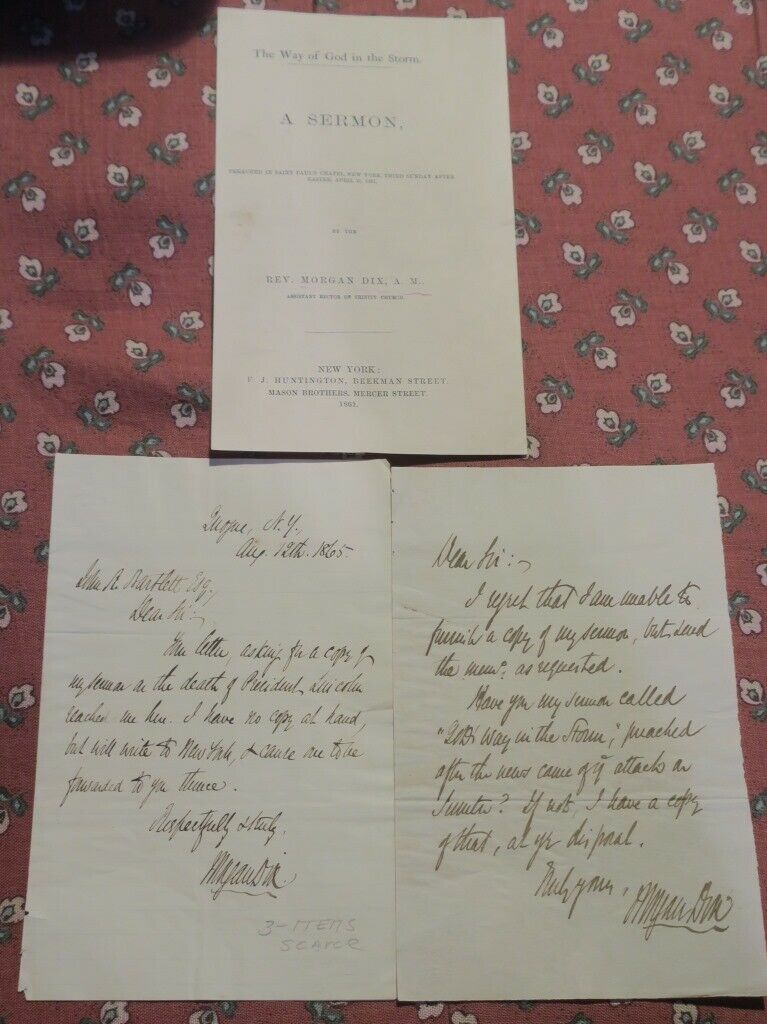 The Way of God in the Storm.
A SERMON,
PREACHED IN SAINT PAUL'S CHAPEL, NEW YORK, THIRD SUNDAY AFTER
EASTER, APRIL 21, 1861,
BY THE
REV. MORGAN DIX, A. M.,
ASSISTANT RECTOR OF TRINITY CHURCH.
NEW YORK:
F. J. HUNTINGTON, BEEKMAN STREET.
MASON BROTHERS, MERCER STREET.
1861.
Quogue, N.Y.
Aug. 12th. 1865.
John R. Bartlett Esq.
Dear Sir:
Your letter, asking for a copy of
my sermon on the death of President Lincoln
reached me here. I have no copy at hand,
but will write to New York, & cause one to be
forwarded to you thence.
Respectfully & truly,
Morgan Dix.
3-ITEMS
SCARCE
Dear Sir:
I regret that I am unable to
furnish a copy of my sermon, but send
the mem. as requested.
Have you my sermon called
"God's Way in the Storm," preached
after the news came of ye attack on
Sumter? If not, I have a copy
of that, at yr disposal.
Truly yours,
Morgan Dix